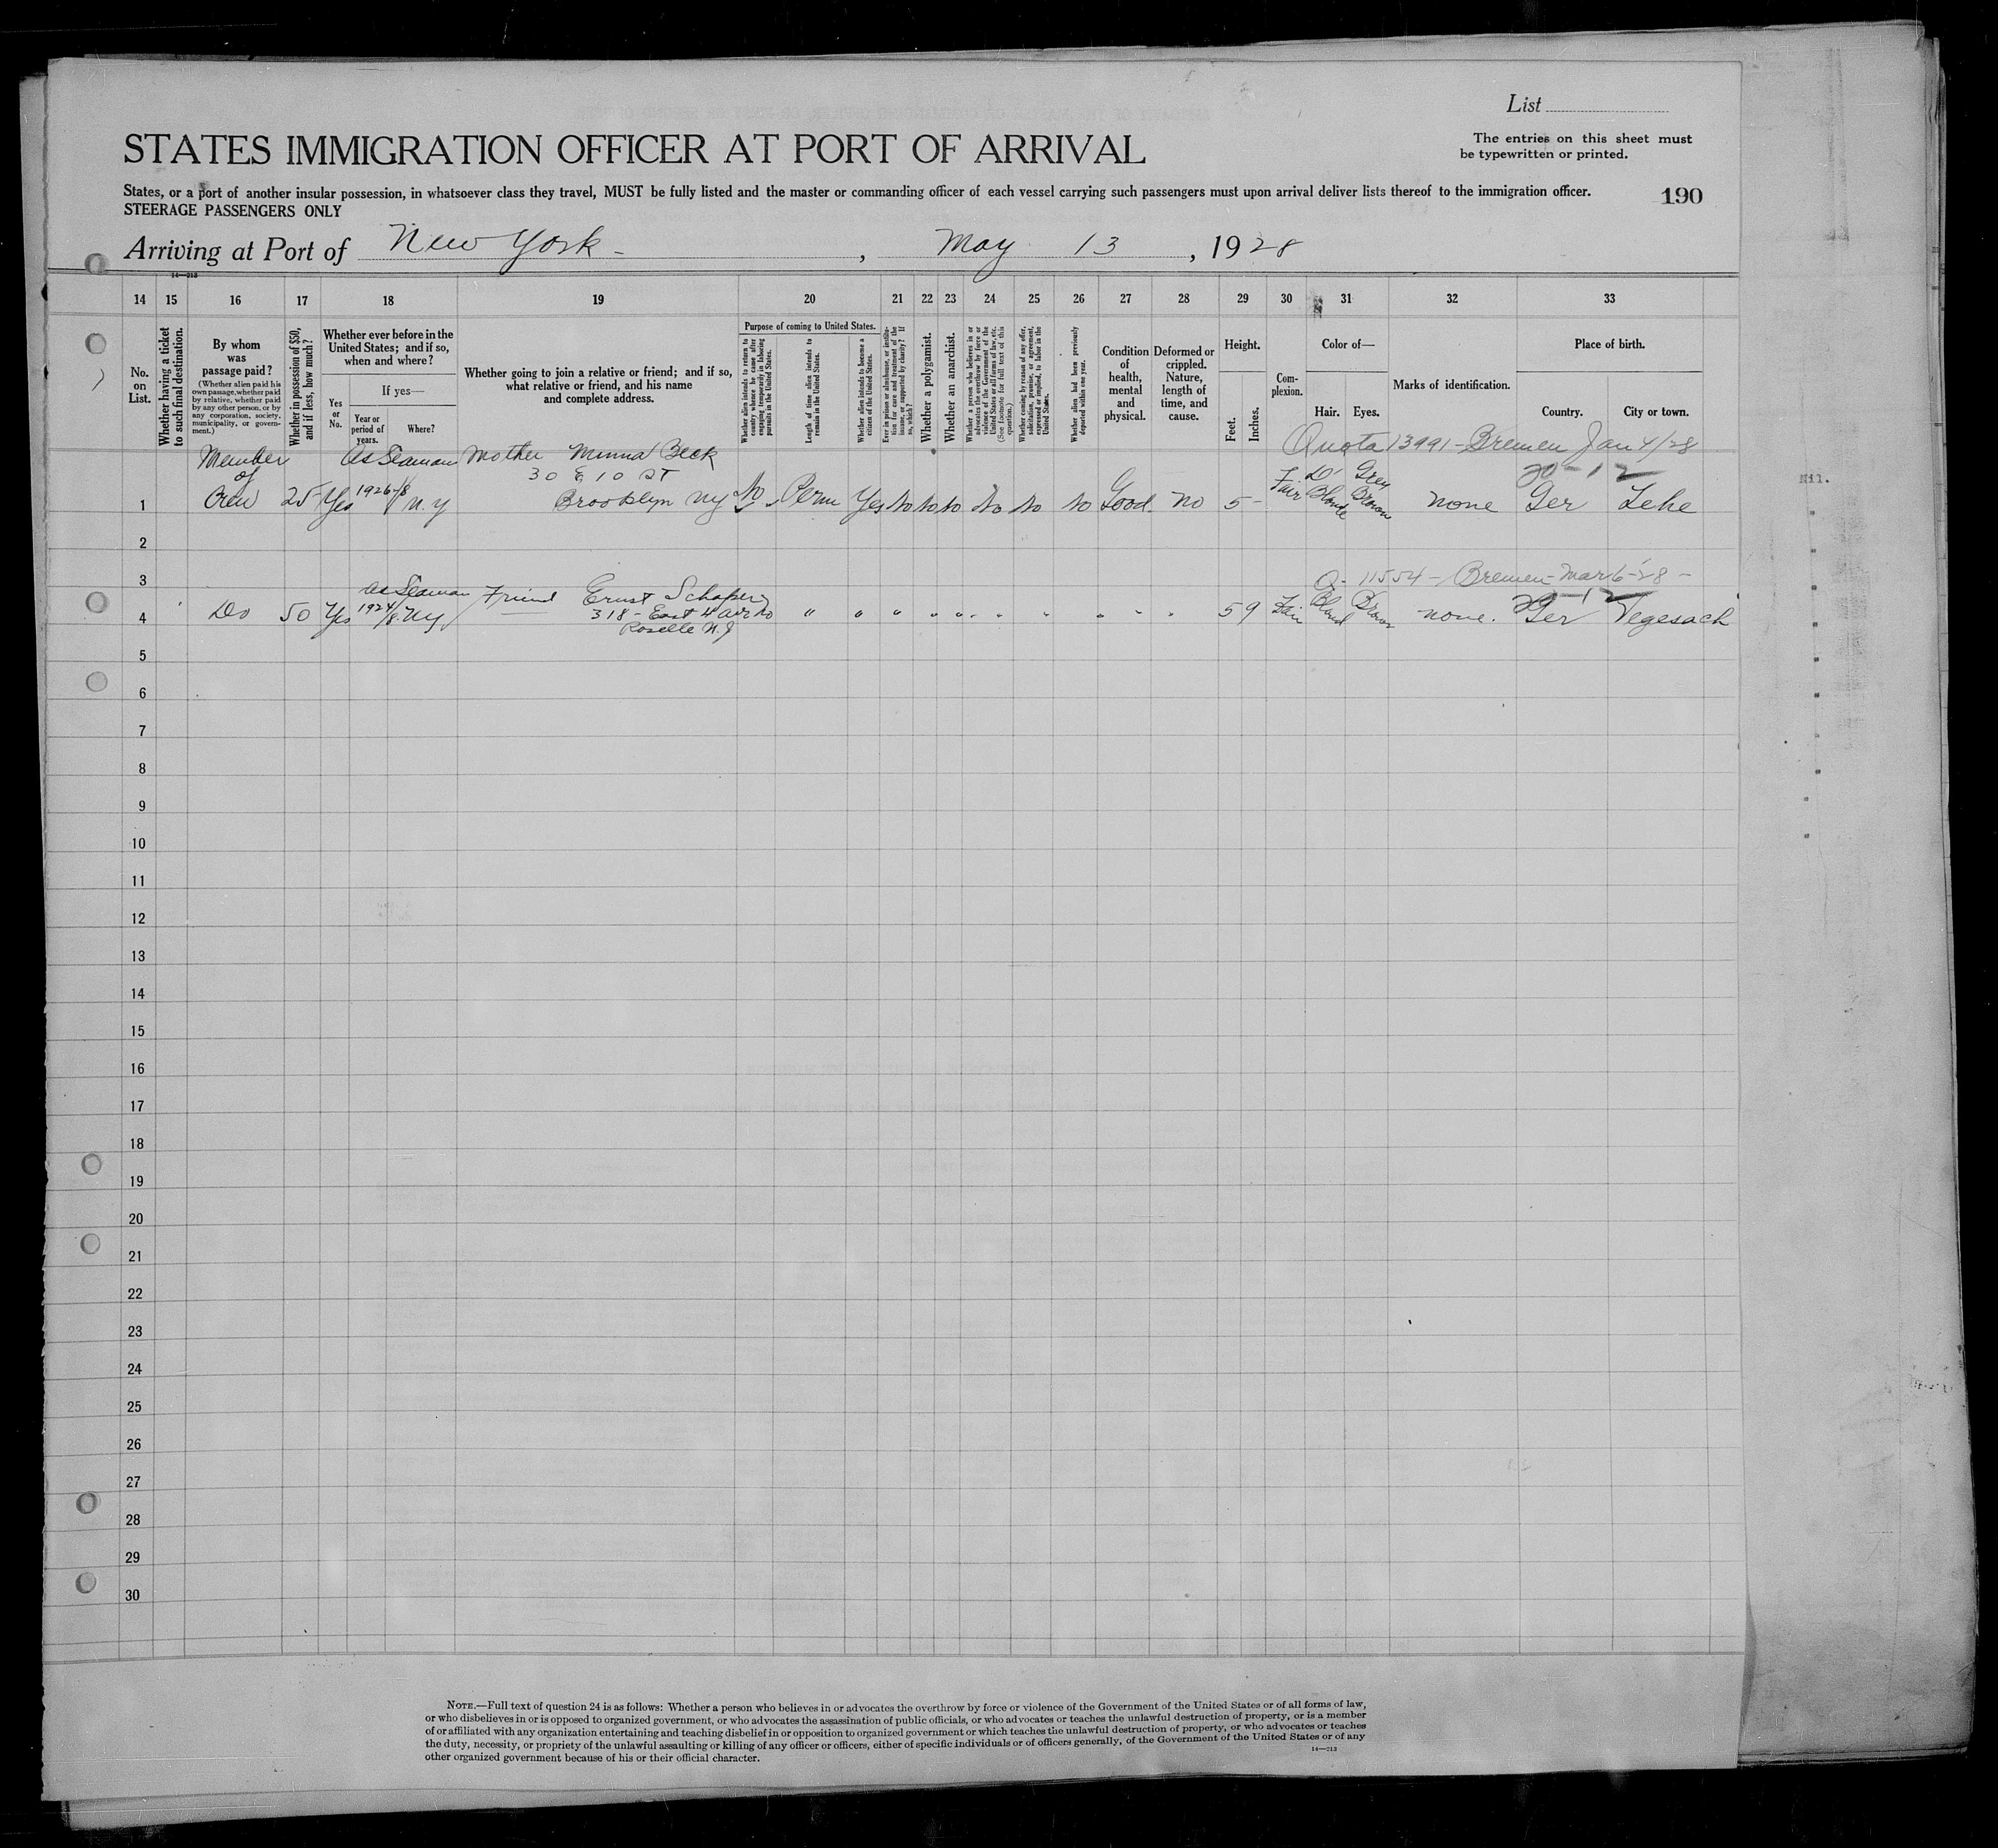 List
The entries on this sheet must
be typewritten or printed.
STATES IMMIGRATION OFFICER AT PORT OF ARRIVAL
States, or a port of another insular possession, in whatsoever class they travel, MUST be fully listed and the master or commanding officer of each vessel carrying such passengers must upon arrival deliver lists thereof to the immigration officer.
190
STEERAGE PASSENGERS ONLY
Arriving at Port of New York - , May 13, 1928
14—213
14 15 16 17 18 19 20 21 22 23 24 25 26 27 28 29 30 31 32 33
No. on List.
Whether having a ticket to such final destination.
By whom was passage paid?
(Whether alien paid his own passage, whether paid by relative, whether paid by any other person, or by any corporation, society, municipality, or government.)
Whether in possession of $50, and if less, how much?
Whether ever before in the United States; and if so, when and where?
Yes or No.
If yes—
Year or period of years.
Where?
Whether going to join a relative or friend; and if so, what relative or friend, and his name and complete address.
Purpose of coming to United States.
Whether alien intends to return to country whence he came after engaging temporarily in laboring pursuits in the United States.
Length of time alien intends to remain in the United States.
Whether alien intends to become a citizen of the United States.
Ever in prison or almshouse, or institution for care and treatment of the insane, or supported by charity? If so, which?
Whether a polygamist.
Whether an anarchist.
Whether a person who believes in or advocates the overthrow by force or violence of the Government of the United States or all forms of law, etc. (See footnote for full text of this question.)
Whether coming by reason of any offer, solicitation, promise, or agreement, expressed or implied, to labor in the United States.
Whether alien had been previously deported within one year.
Condition of health, mental and physical.
Deformed or crippled. Nature, length of time, and cause.
Height.
Feet. Inches.
Complexion.
Color of—
Hair. Eyes.
Marks of identification.
Place of birth.
Country. City or town.
Quota 13991 - Bremen Jan 4/28
Member of Crew 25 Yes As Seaman 1926/8 N.Y Mother Minna Beck
30 E 10 ST
Brooklyn NY
1 No Perm Yes No No No No No No Good no 5 - Fair D. Blonde Grey Brown none Ger Lehe
20-12
2
3
Q- 11554 - Bremen - Mar 6-'28 -
As Seaman Friend Ernst Schafer
4 Do 50 Yes 1924/8 NY 318 - East 4 Ave No " " " " " " " " " " 5 9 Fair Blond Brown none. Ger Vegesack
Roselle N.J
5
6
7
8
9
10
11
12
13
14
15
16
17
18
19
20
21
22
23
24
25
26
27
28
29
30
NOTE.—Full text of question 24 is as follows: Whether a person who believes in or advocates the overthrow by force or violence of the Government of the United States or of all forms of law,
or who disbelieves in or is opposed to organized government, or who advocates the assassination of public officials, or who advocates or teaches the unlawful destruction of property, or is a member
of or affiliated with any organization entertaining and teaching disbelief in or opposition to organized government or which teaches the unlawful destruction of property, or who advocates or teaches
the duty, necessity, or propriety of the unlawful assaulting or killing of any officer or officers, either of specific individuals or of officers generally, of the Government of the United States or of any
other organized government because of his or their official character.
14—213